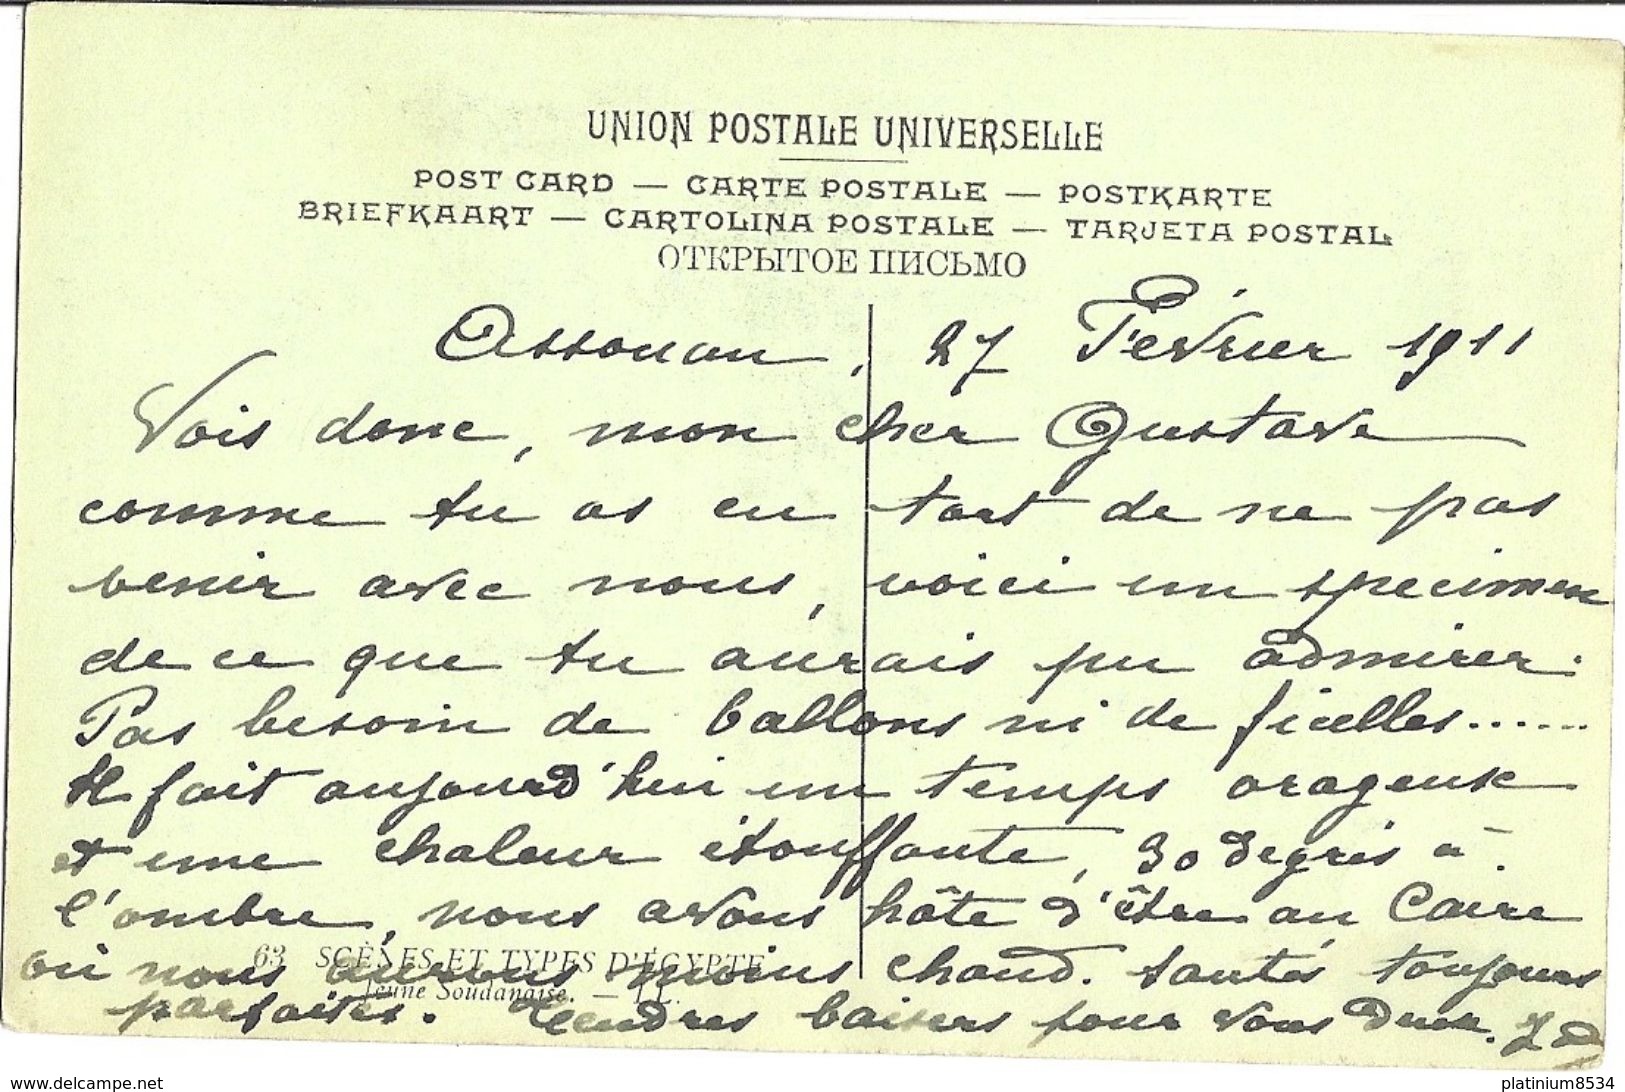 UNION POSTALE UNIVERSELLE
POST CARD — CARTE POSTALE — POSTKARTE
BRIEFKAART — CARTOLINA POSTALE — TARJETA POSTAL
ОТКРЫТОЕ ПИСЬМО
Assouan, 27 Février 1911
Vois donc, mon cher Gustave
comme tu as eu tort de ne pas
venir avec nous, voici un specimen
de ce que tu aurais pu admirer.
Pas besoin de ballons ni de ficelles......
Il fait aujourd'hui un temps orageux
et une chaleur étouffante, 30 degrés à
l'ombre, nous avons hâte d'être au Caire
où nous aurons moins chaud. Santés toujours
parfaites. Tendres baisers pour vous deux.
63 SCÈNES ET TYPES D'ÉGYPTE
Jeune Soudanaise. — LL.
www.delcampe.net
platinium8534